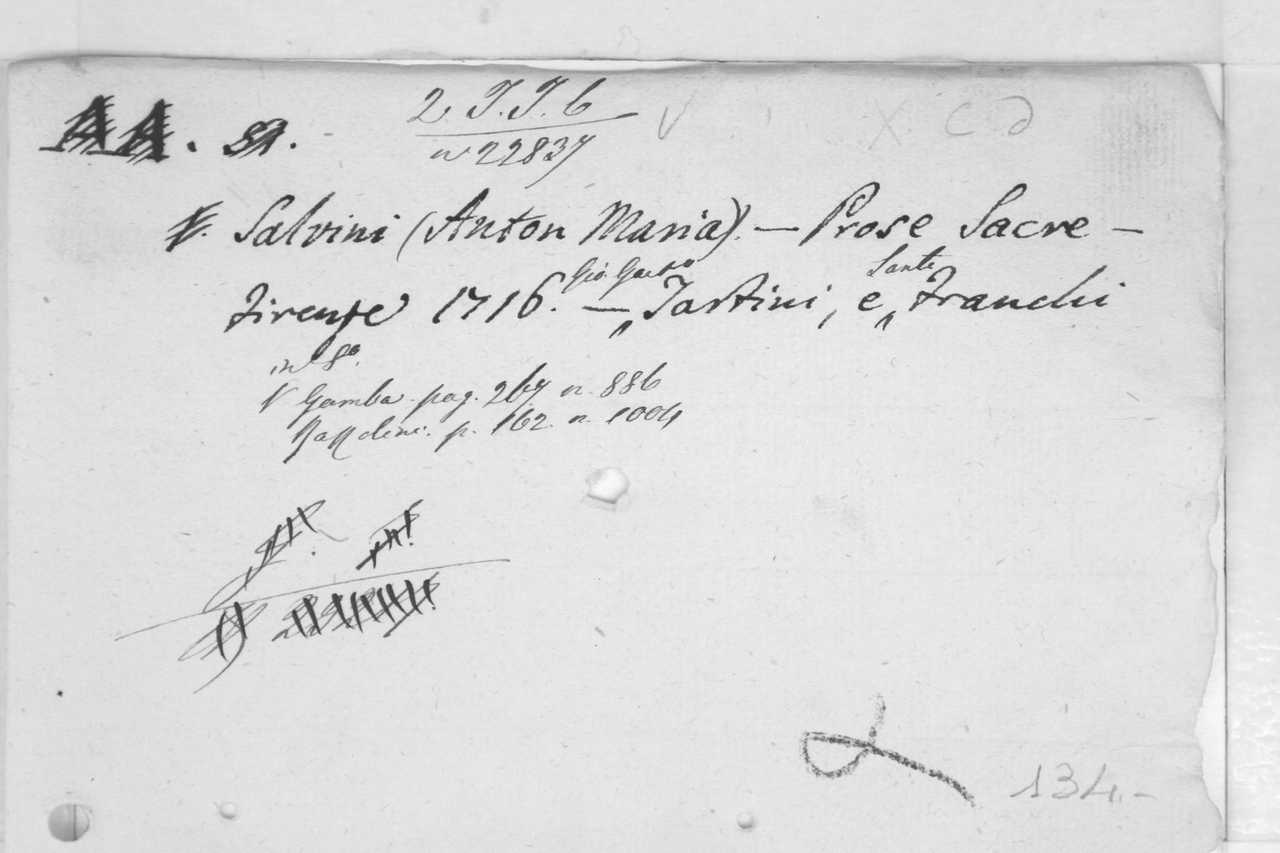 2 J.J. 6
n 22837
V X C D
Salvini (Anton Maria). — Prose Sacre —
Firenze 1716. — Gio. Gaet.º Tartini, e Santi Franchi
in 8º.
V Gamba. pag. 267 n. 886
Razzolini. p. 162. n. 1004
134.-